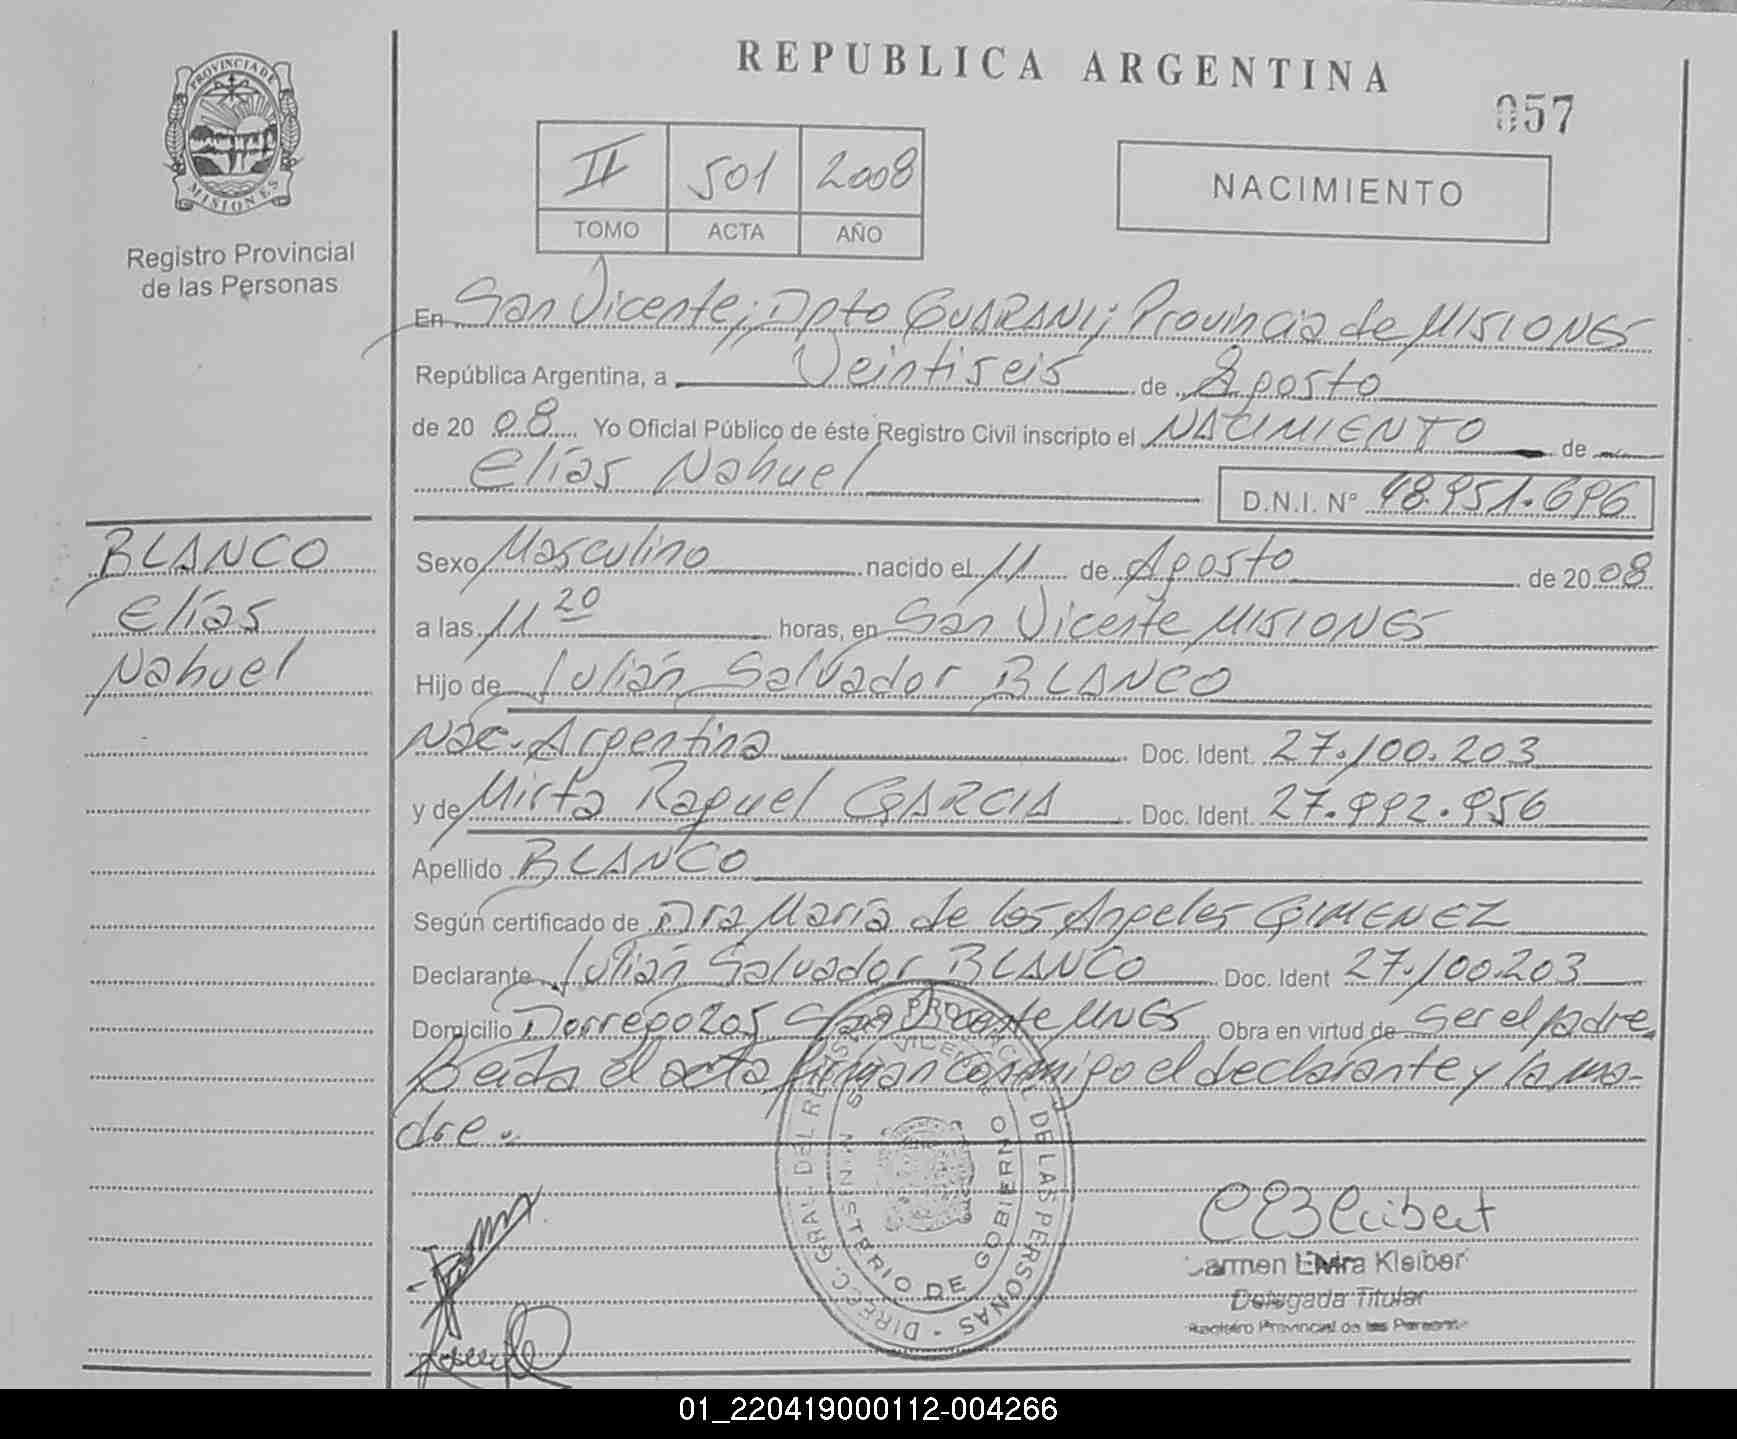 REPUBLICA ARGENTINA
057
PROVINCIA DE
MISIONES
Registro Provincial
de las Personas
II 501 2008
TOMO ACTA AÑO
NACIMIENTO
En San Vicente; Dpto GUARANI; Provincia de MISIONES
República Argentina, a Veintiseis de Agosto
de 20 08 Yo Oficial Público de éste Registro Civil inscripto el NACIMIENTO de
Elías Nahuel D.N.I. N° 48.951.696
BLANCO
Elías
Nahuel
Sexo Masculino nacido el 11 de Agosto de 20 08
a las 11 20 horas, en San Vicente MISIONES
Hijo de Julián Salvador BLANCO
Nac. Argentina Doc. Ident. 27.100.203
y de Mirta Raquel GARCIA Doc. Ident. 27.992.956
Apellido BLANCO
Según certificado de Dra María de los Angeles GIMENEZ
Declarante Julián Salvador BLANCO Doc. Ident 27.100.203
Domicilio Dorrego 205 San Vicente MNES Obra en virtud de Ser el padre
Leída el acta firman conmigo el declarante y la ma-
dre.
DIREC. GRAL. DEL REGISTRO PROVINCIAL DE LAS PERSONAS
MINISTERIO DE GOBIERNO
S. VICENTE
CEKleibert
Carmen Elvira Kleiber
Delegada Titular
Registro Provincial de las Personas
01_220419000112-004266